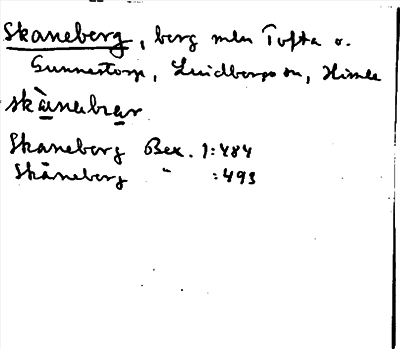 Skaneberg, berg mln Tofta o.
Gunnestorp, Lindbergs sn, Himle
skànabrar
Skaneberg Bex. 1:484
Skåneberg " :493